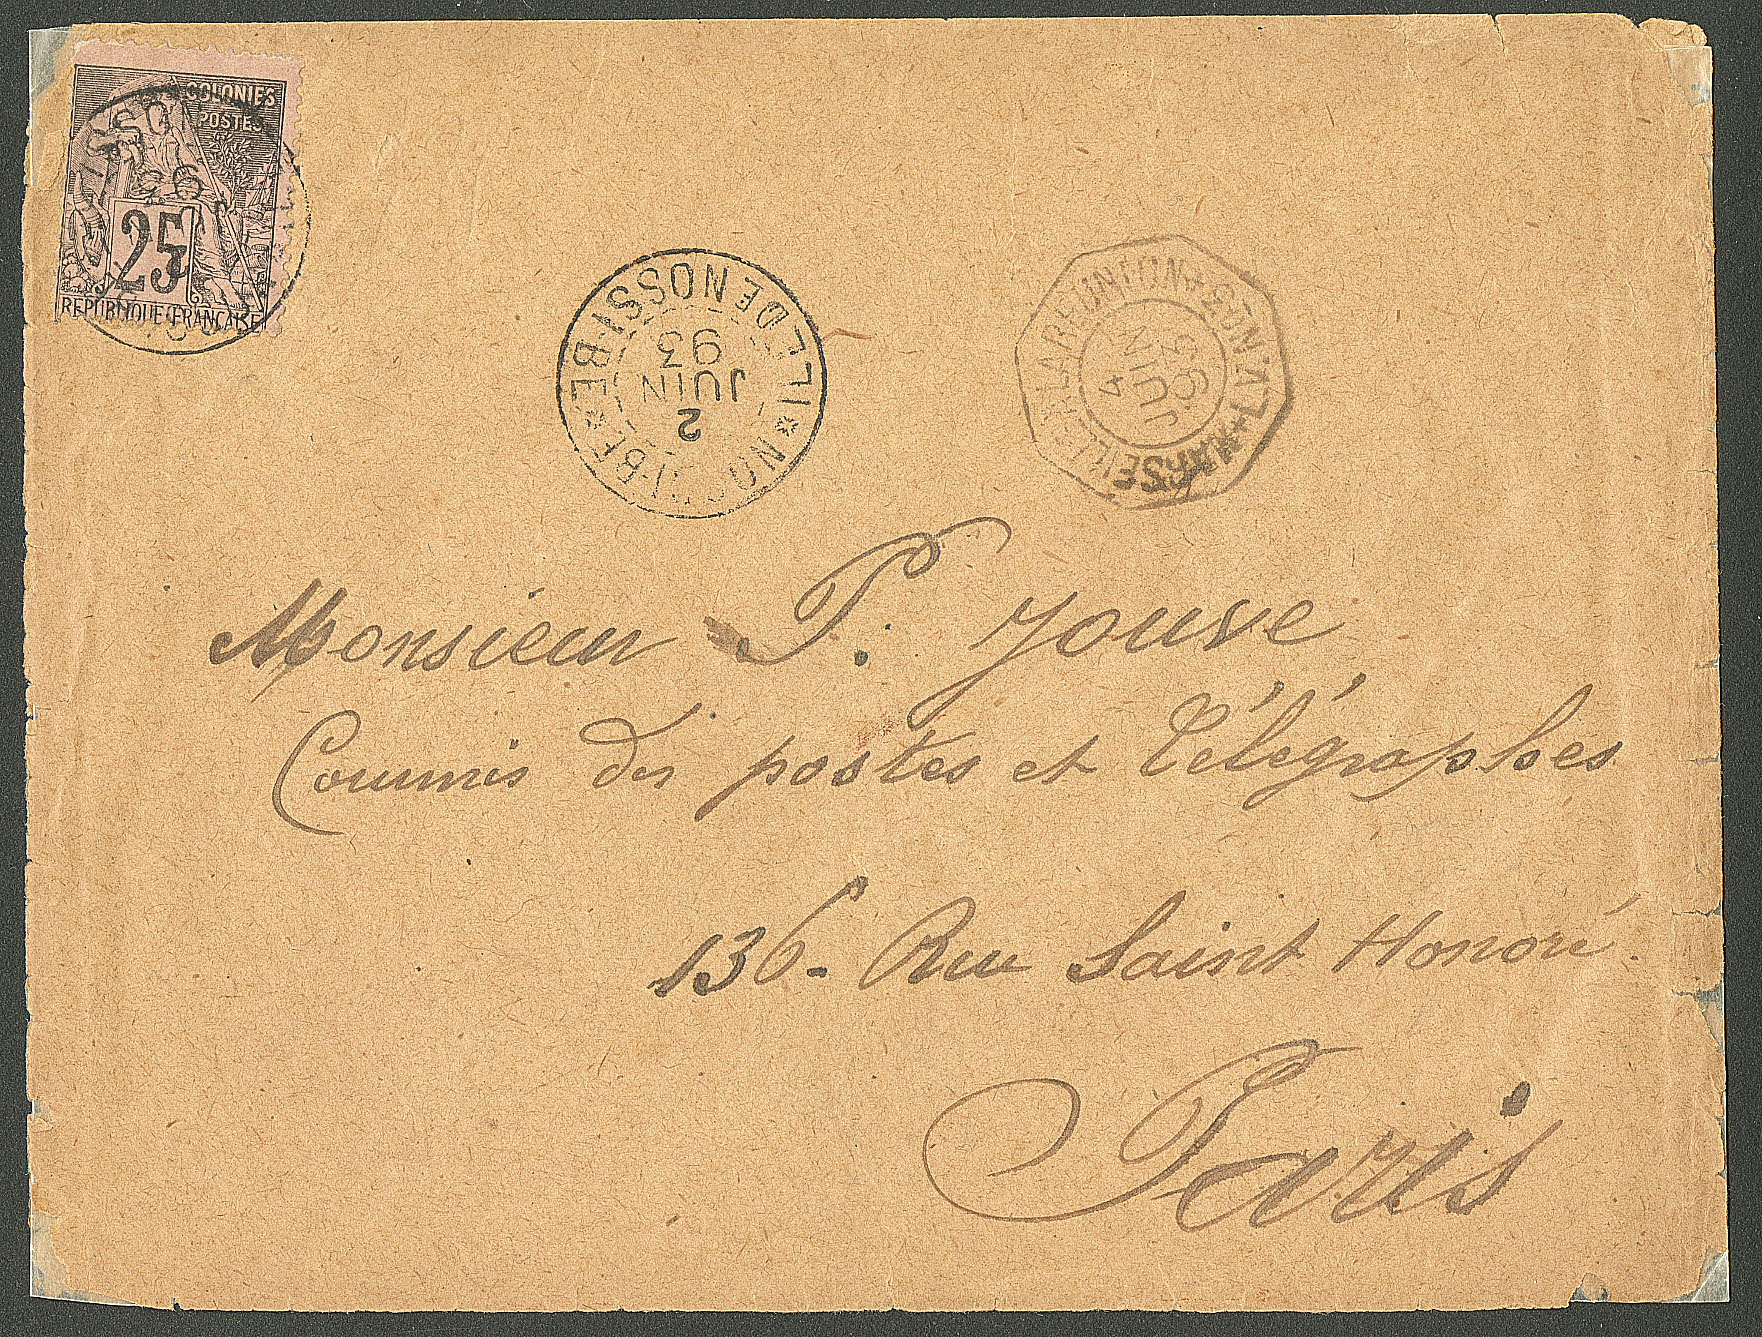 COLONIES
POSTES
25
REPUBLIQUE FRANCAISE
ILE DE NOSSI-BE
2
JUIN
93
MARSEILLE A LA REUNION
L.V.N°3
4
JUIN
93
Monsieur P. Jouve
Commis des postes et Télégraphes
136- Rue Saint Honoré.
Paris